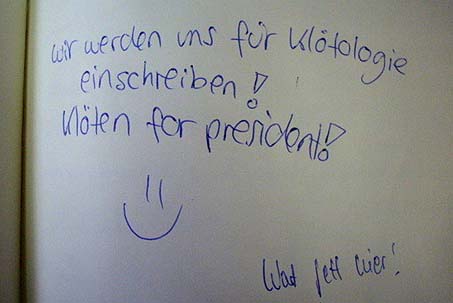 wir werden uns für Klötologie
einschreiben!
Klöten for president!
Wat fett hier!